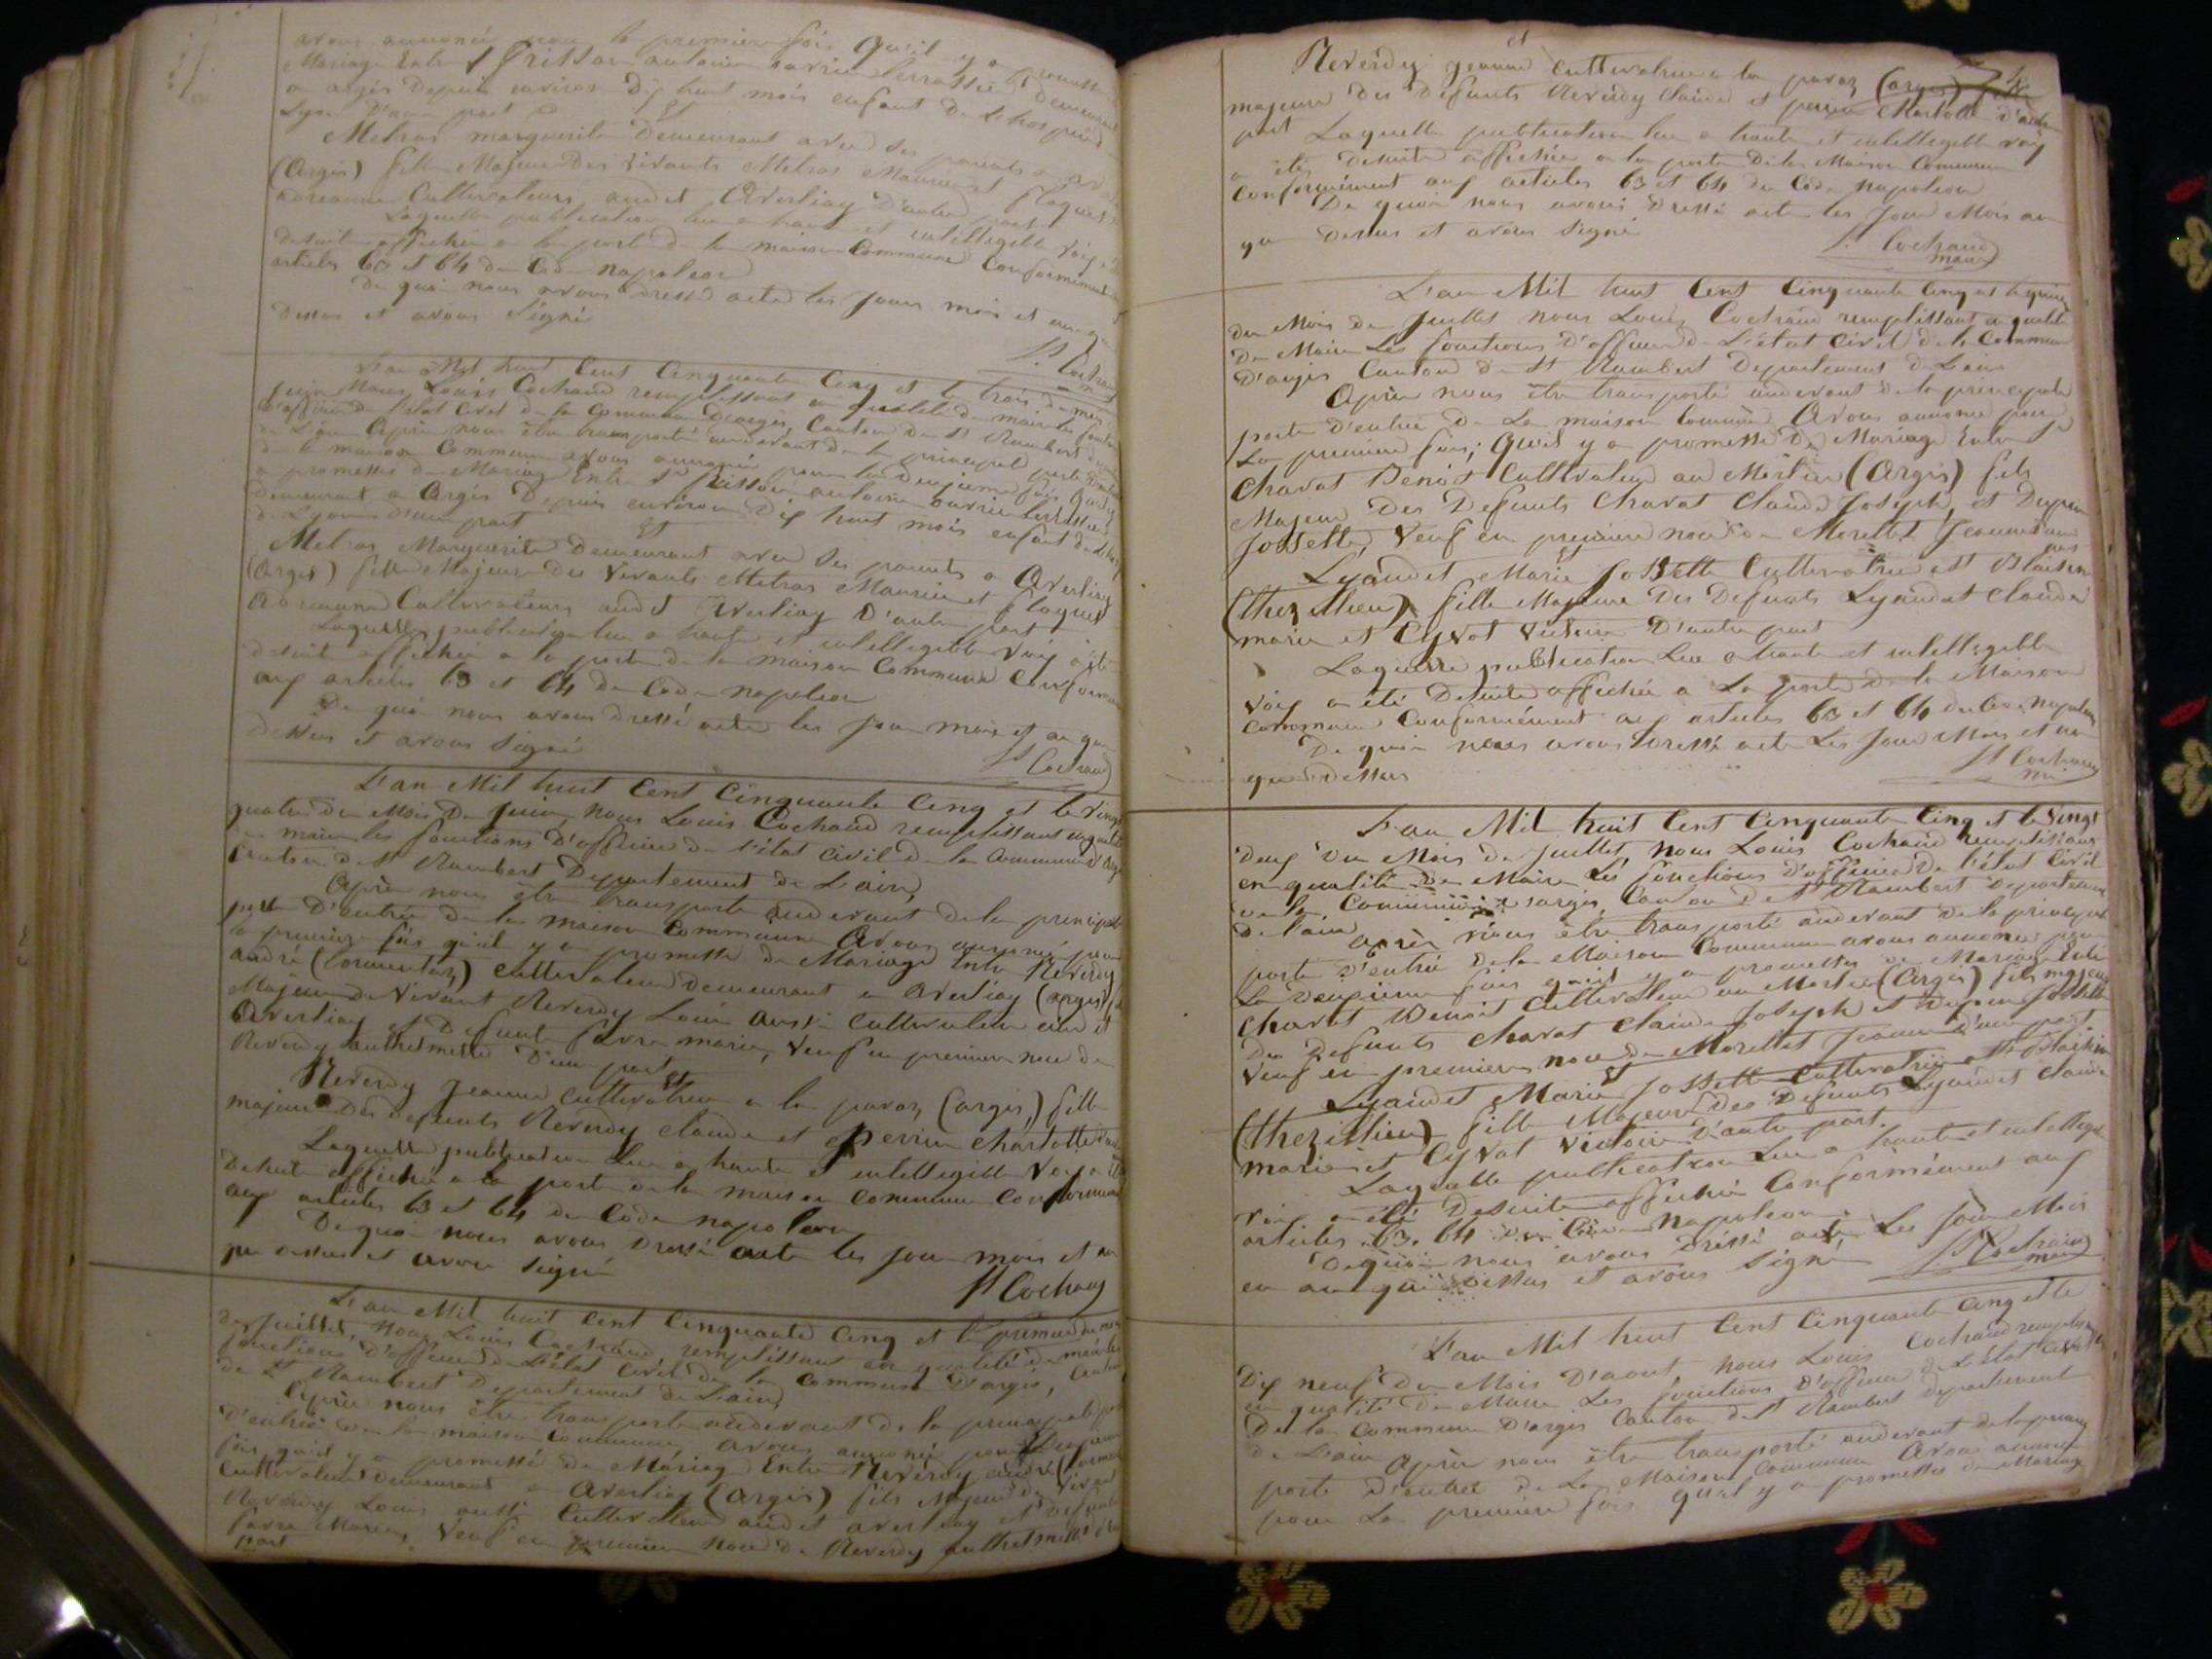 avons annoncé pour la premiere fois qu'il y a promesse
Mariage Entre St Frisson antoine ouvrier terrassier demeurant
a argis Depuis environ dix huit mois enfant De L'hospice
Lyon D'une part
Et
Metras marguerite Demeurant avec ses parents a
(Argis) fille Majeure Des vivants Metras Maurice et Flaquet
Cultivateurs audit Averliay D'autre part
Laquelle publication lue a haute et intelligible voix
Desuite affichée a la porte de la maison Commune Conformément
articles 63 et 64 du Code napoleon
De quoi nous avons Dressé acte les jours mois et an que
Dessus et avons Signé
L'an Mil huit Cent Cinquante Cinq et le trois du mois
juin Nous Louis Cochand remplissant en qualité de maire les fonctions
d'officier de l'état civil de la Commune D'argis, Canton de St Rambert
de L'ain Après nous être transporté audevant de la principal porte
de la maison Commune avons annoncé pour la deuxieme fois qu'il y
a promesse de Mariage Entre St Frisson antoine ouvrier terrassier
Demeurant a Argis Depuis environ Dix huit mois enfant de
de Lyon d'une part
Et
Metras Marguerite Demeurant avec ses parents a Averliay
(Argis) fille Majeure des vivants Metras Maurice et Flaquet
Cultivateurs audit Averliay D'autre part
Laquelle publication lue a haute et intelligible voix a été
desuite affichée a la porte de la maison Commune Conformément
aux articles 63 et 64 du Code napoleon
De quoi nous avons dressé acte les jour mois et an que
dessus et avons signé
Cochand
L'an Mil huit Cent Cinquante Cinq et le vingt
quatre du Mois De Juin, nous Louis Cochand remplissant en qualité
de maire les fonctions D'officier de l'état civil de la Commune d'argis
Canton de St Rambert Departement de L'ain,
Après nous être transporté audevant de la principale
porte D'entrée de la maison Commune Avons annoncé pour
la premiere fois qu'il y a promesse de Mariage Entre Reverdy
andré (Cormentaz) cultivateur demeurant a Averliay (argis) fils
Majeur de Vivant Reverdy Louis aussi Cultivateur audit
Averliay et Defunte favre marie, Veuf en premiere noce de
Reverdy D'une part
Et
Reverdy Jeanne Cultivatrice a la paraz (argis) fille
majeure Des defunts Reverdy claude et perrin Charlotte d'autre
Laquelle publication lue a haute et intelligible voix a été
Desuite affichée a la porte de la maison commune Conformément
aux articles 63 et 64 du Code napoleon
De quoi nous avons Dressé acte les jour mois et an
que dessus et avons signé
Cochand
L'an Mil huit Cent Cinquante Cinq et le premier du mois
de Juillet, nous Louis Cochand, remplissant en qualité de maire les
fonctions D'officier de L'état Civil de la Commune D'argis, Canton
de St Rambert Departement de L'ain,
Après nous être transporté audevant de la principale porte
D'entrée de la maison Commune avons annoncé pour la Deuxieme
fois qu'il y a promesse de Mariage Entre Reverdy andré (Cormentaz)
Cultivateur demeurant a Averliay (argis) fils Majeur de Vivant
Reverdy Louis aussi Cultivateur audit averliay et Defunte
favre Marie, Veuf en premiere noce De Reverdy D'une
part
et
Reverdy jeanne cultivatrice a la paraz (argis) fille
majeure Des Defunts Reverdy Claude et perrin Charlotte D'autre
part
Laquelle publication lue a haute et intelligible voix
a été Desuite affichée a la porte De la Maison Commune
Conformément aux articles 63 et 64 du Code napoleon
De quoi nous avons Dressé acte les jour Mois an
que Dessus et avons Signé
Cochand
maire
L'an Mil huit Cent Cinquante Cinq et le quinze
du Mois de Juillet nous Louis Cochand remplissant en qualité
De Maire Les fonctions D'officier de L'état Civil de la Commune
D'argis Canton de St Rambert Departement de L'ain
Après nous être transporté audevant de la principale
porte D'entrée De La maison Commune Avons annoncé pour
La premiere fois; Qu'il y a promesse De Mariage Entre
Charvat Benoit Cultivateur au Mortier (Argis) fils
Majeur Des Defunts Charvat Claude Joseph, et Dupin
Jossette, Veuf en premiere noce de Morellet Jeanne d'une
part
Et
Lyaudet Marie Jossette Cultivatrice a St Blaisin
(thezillieu) fille Majeure Des Defunts Lyaudet Claude
marie et Cyvot Victoire D'autre part
Laquelle publication Lue a haute et intelligible
Voix a été Desuite affichée a La porte de la Maison
Commune Conformément aux articles 63 et 64 du Code Napoleon
De quoi nous avons Dressé acte Les Jour Mois et an
que Dessus
Cochand
L'an Mil huit Cent Cinquante Cinq et le Vingt
deux Du Mois De Juillet Nous Louis Cochand remplissant
en qualité De Maire Les fonctions D'officier De l'état Civil
de la Commune D'argis, Canton De St Rambert Departement
De L'ain
Après nous être transporté audevant De la principale
porte D'entrée De la Maison Commune avons annoncé pour
La deuxieme fois qu'il y a promesse de Mariage Entre
Charvat Benoit Cultivateur au Mortier (Argis) fils majeur
Des Defunts Charvat Claude Joseph et Dupin Jossette
Veuf en premiere noce de Morellet Jeanne D'une part
Et
Lyaudet Marie Jossette Cultivatrice a St Blaisin
(thezillieu) fille Majeure Des Defunts Lyaudet Claude
marie et Cyvot Victoire D'autre part.
Laquelle publication Lue a haute et intelligible
voix a été Desuite affichée Conformément aux
articles 63. 64 Du Code Napoleon.
De quoi nous avons Dressé acte Les Jour Mois
en an que Dessus et avons Signé
Cochand
maire
L'an Mil huit Cent Cinquante Cinq et le
Dix neuf Du Mois D'aout, nous Louis Cochand remplissant
en qualité De Maire Les fonctions D'officier de L'état Civil
De la Commune D'argis Canton de St Rambert departement
de L'ain
Après nous être transporté audevant de la principale
porte D'entrée De La Maison Commune Avons annoncé
pour La premiere fois qu'il y a promesse de Mariage